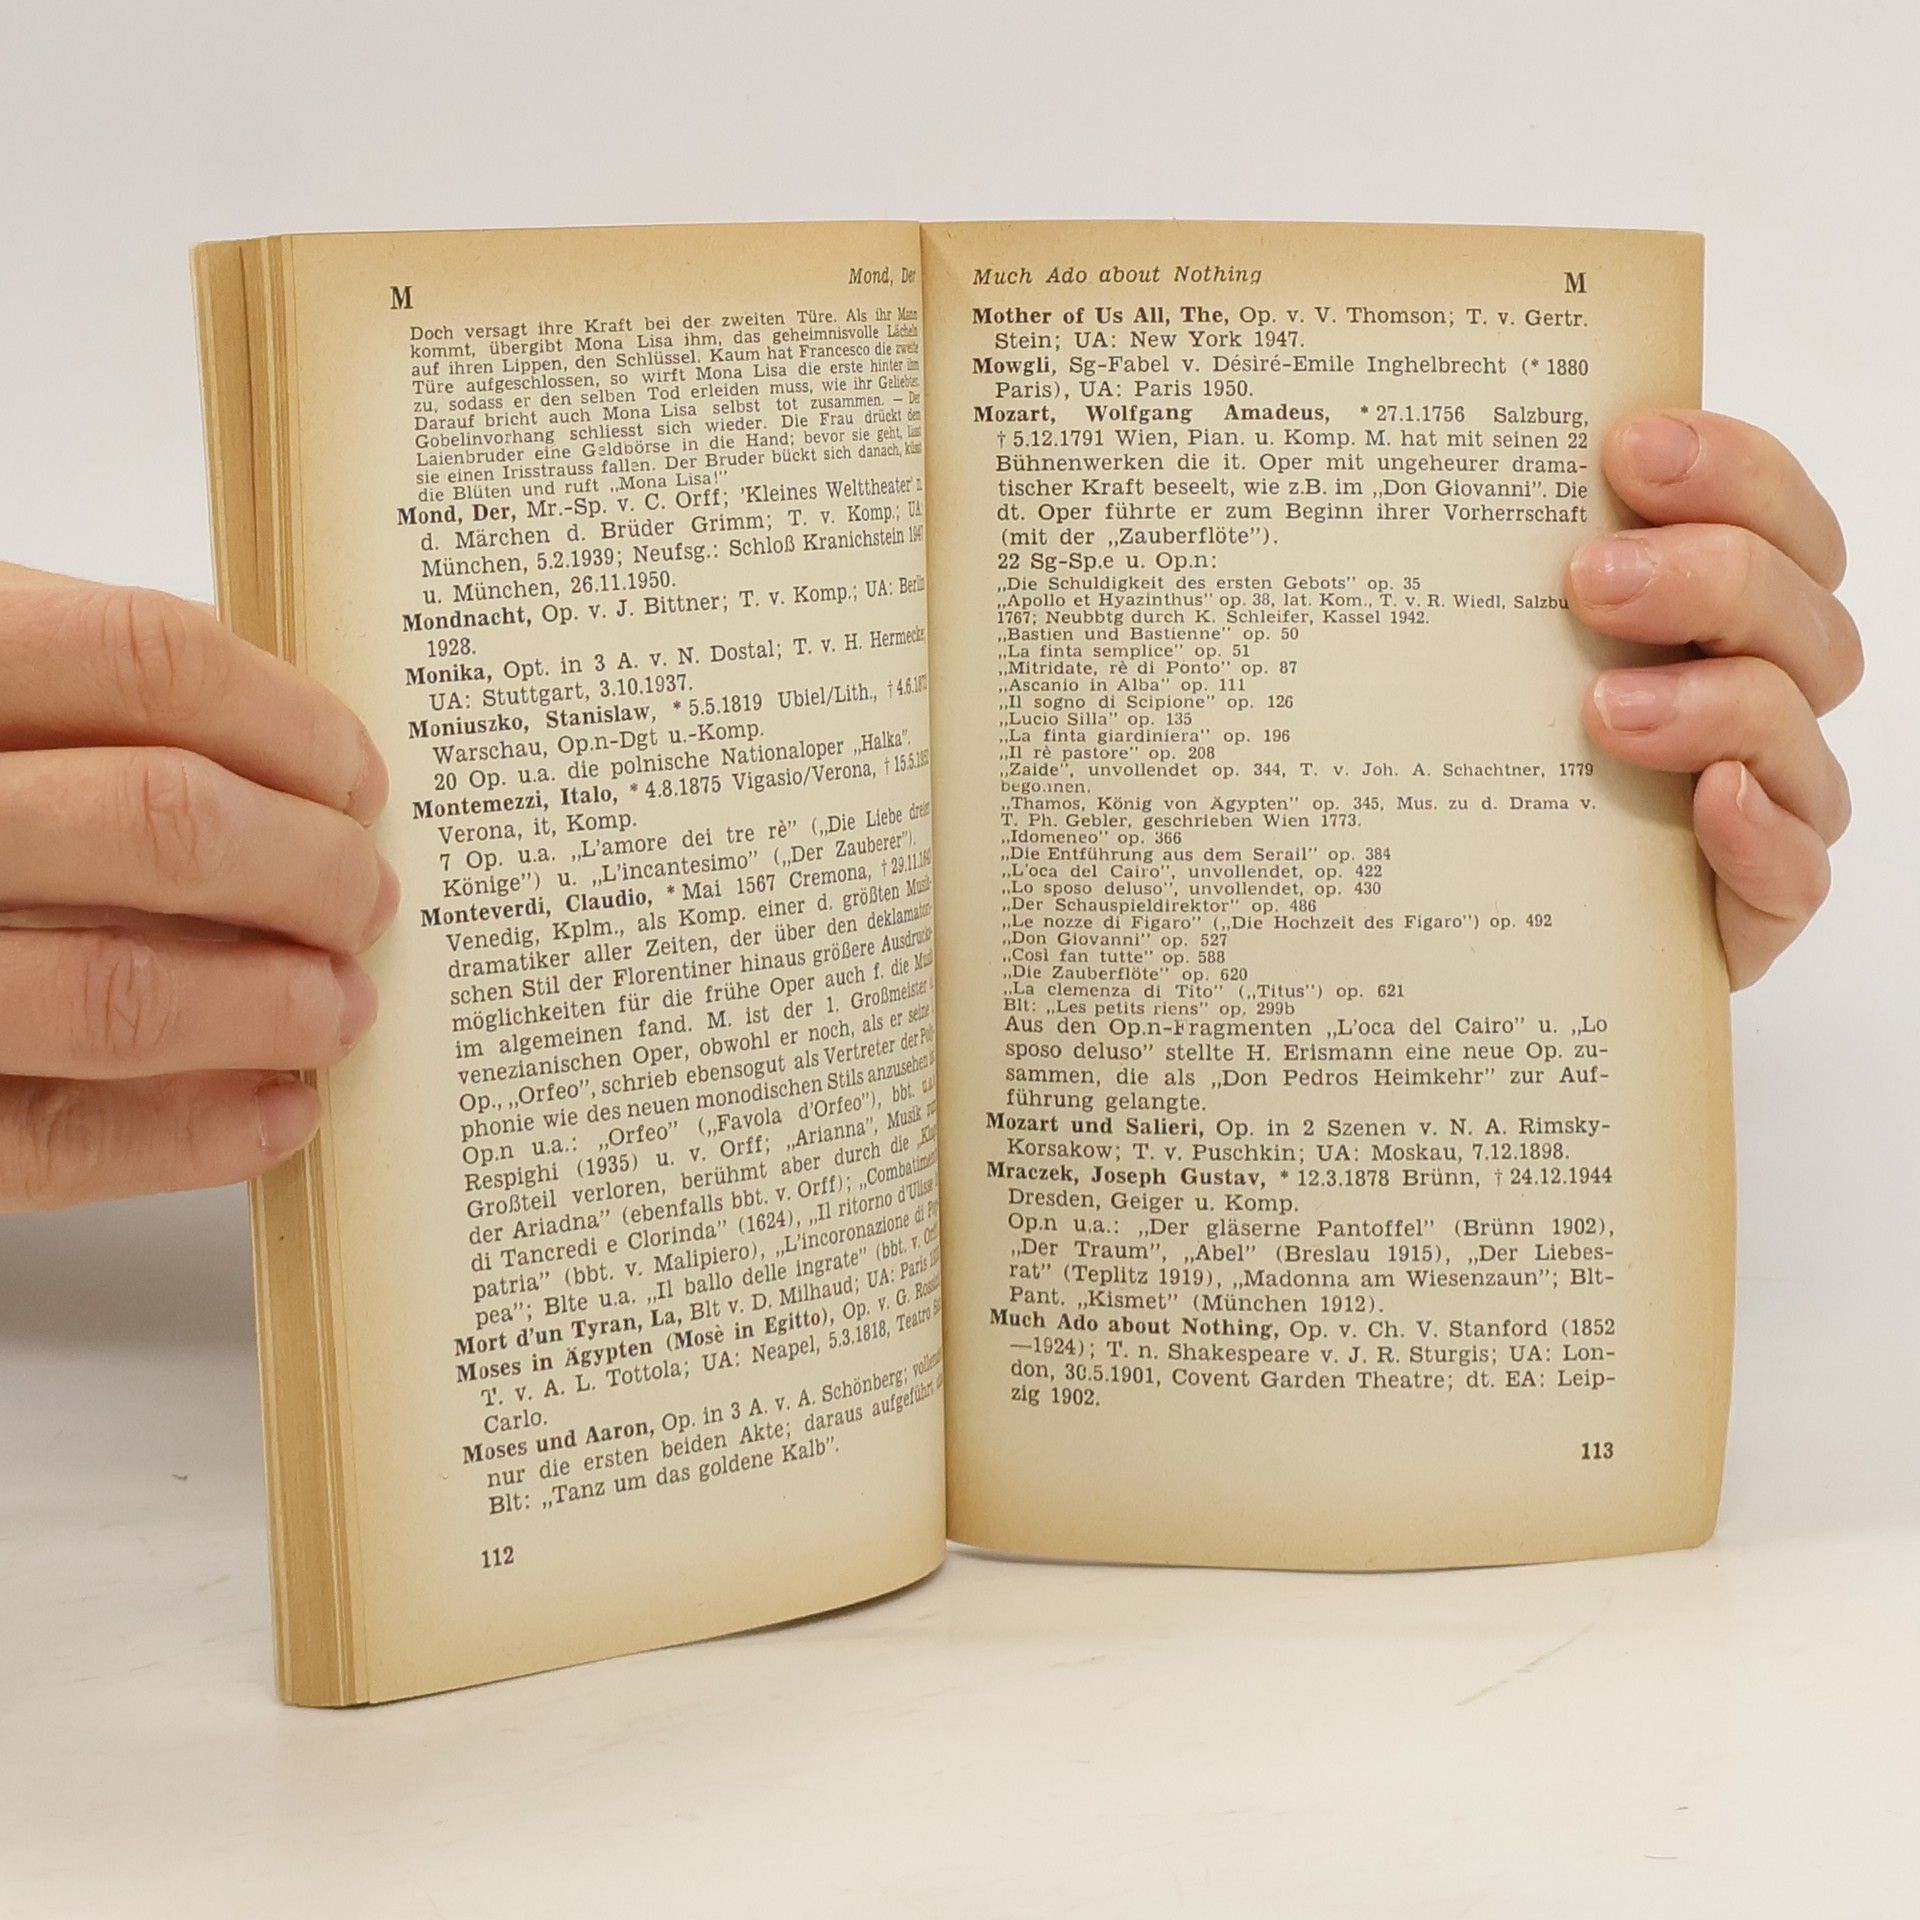 M
Mond, Der
Doch versagt ihre Kraft bei der zweiten Türe. Als ihr Mann
kommt, übergibt Mona Lisa ihm, das geheimnisvolle Lächeln
auf ihren Lippen, den Schlüssel. Kaum hat Francesco die zweite
Türe aufgeschlossen, so wirft Mona Lisa die erste hinter ihm
zu, sodass er den selben Tod erleiden muss, wie ihr Geliebter.
Darauf bricht auch Mona Lisa selbst tot zusammen. — Der
Gobelinvorhang schliesst sich wieder. Die Frau drückt dem
Laienbruder eine Geldbörse in die Hand; bevor sie geht, lässt
sie einen Irisstrauss fallen. Der Bruder bückt sich danach, küsst
die Blüten und ruft „Mona Lisa!”
Mond, Der, Mr.-Sp. v. C. Orff; 'Kleines Welttheater' n.
d. Märchen d. Brüder Grimm; T. v. Komp.; UA:
München, 5.2.1939; Neufsg.: Schloß Kranichstein 1947
u. München, 26.11.1950.
Mondnacht, Op. v. J. Bittner; T. v. Komp.; UA: Berlin
1928.
Monika, Opt. in 3 A. v. N. Dostal; T. v. H. Hermecke;
UA: Stuttgart, 3.10.1937.
Moniuszko, Stanislaw, * 5.5.1819 Ubiel/Lith., † 4.6.1872
Warschau, Op.n-Dgt u.-Komp.
20 Op. u.a. die polnische Nationaloper „Halka”.
Montemezzi, Italo, * 4.8.1875 Vigasio/Verona, † 15.5.1952
Verona, it, Komp.
7 Op. u.a. „L'amore dei tre rè” („Die Liebe dreier
Könige”) u. „L'incantesimo” („Der Zauberer”).
Monteverdi, Claudio, * Mai 1567 Cremona, † 29.11.1643
Venedig, Kplm., als Komp. einer d. größten Musik-
dramatiker aller Zeiten, der über den deklamatori-
schen Stil der Florentiner hinaus größere Ausdrucks-
möglichkeiten für die frühe Oper auch f. die Musik
im algemeinen fand. M. ist der 1. Großmeister d.
venezianischen Oper, obwohl er noch, als er seine 1.
Op., „Orfeo”, schrieb ebensogut als Vertreter der Poly-
phonie wie des neuen monodischen Stils anzusehen
Op.n u.a.: „Orfeo” („Favola d'Orfeo”), bbt. u.a.
Respighi (1935) u. v. Orff; „Arianna”, Musik zum
Großteil verloren, berühmt aber durch die „Klage
der Ariadna” (ebenfalls bbt. v. Orff); „Combatimento
di Tancredi e Clorinda” (1624), „Il ritorno d'Ulisse
patria” (bbt. v. Malipiero), „L'incoronazione di Pop-
pea”; Blte u.a. „Il ballo delle ingrate” (bbt. v. Orff)
Mort d'un Tyran, La, Blt v. D. Milhaud; UA: Paris
Moses in Ägypten (Mosè in Egitto), Op. v. G. Rossini;
T. v. A. L. Tottola; UA: Neapel, 5.3.1818, Teatro San
Carlo.
Moses und Aaron, Op. in 3 A. v. A. Schönberg; vollendet
nur die ersten beiden Akte; daraus aufgeführt
Blt: „Tanz um das goldene Kalb”.
112
Much Ado about Nothing
M
Mother of Us All, The, Op. v. V. Thomson; T. v. Gertr.
Stein; UA: New York 1947.
Mowgli, Sg-Fabel v. Désiré-Emile Inghelbrecht (* 1880
Paris), UA: Paris 1950.
Mozart, Wolfgang Amadeus, * 27.1.1756 Salzburg,
† 5.12.1791 Wien, Pian. u. Komp. M. hat mit seinen 22
Bühnenwerken die it. Oper mit ungeheurer drama-
tischer Kraft beseelt, wie z.B. im „Don Giovanni”. Die
dt. Oper führte er zum Beginn ihrer Vorherrschaft
(mit der „Zauberflöte”).
22 Sg-Sp.e u. Op.n:
„Die Schuldigkeit des ersten Gebots” op. 35
„Apollo et Hyazinthus” op. 38, lat. Kom., T. v. R. Wiedl, Salzbu
1767; Neubbtg durch K. Schleifer, Kassel 1942.
„Bastien und Bastienne” op. 50
„La finta semplice” op. 51
„Mitridate, rè di Ponto” op. 87
„Ascanio in Alba” op. 111
„Il sogno di Scipione” op. 126
„Lucio Silla” op. 135
„La finta giardiniera” op. 196
„Il rè pastore” op. 208
„Zaide”, unvollendet op. 344, T. v. Joh. A. Schachtner, 1779
begonnen.
„Thamos, König von Ägypten” op. 345, Mus. zu d. Drama v.
T. Ph. Gebler, geschrieben Wien 1773.
„Idomeneo” op. 366
„Die Entführung aus dem Serail” op. 384
„L'oca del Cairo”, unvollendet, op. 422
„Lo sposo deluso”, unvollendet, op. 430
„Der Schauspieldirektor” op. 486
„Le nozze di Figaro” („Die Hochzeit des Figaro”) op. 492
„Don Giovanni” op. 527
„Così fan tutte” op. 588
„Die Zauberflöte” op. 620
„La clemenza di Tito” („Titus”) op. 621
Blt: „Les petits riens” op. 299b
Aus den Op.n-Fragmenten „L'oca del Cairo” u. „Lo
sposo deluso” stellte H. Erismann eine neue Op. zu-
sammen, die als „Don Pedros Heimkehr” zur Auf-
führung gelangte.
Mozart und Salieri, Op. in 2 Szenen v. N. A. Rimsky-
Korsakow; T. v. Puschkin; UA: Moskau, 7.12.1898.
Mraczek, Joseph Gustav, * 12.3.1878 Brünn, † 24.12.1944
Dresden, Geiger u. Komp.
Op.n u.a.: „Der gläserne Pantoffel” (Brünn 1902),
„Der Traum”, „Abel” (Breslau 1915), „Der Liebes-
rat” (Teplitz 1919), „Madonna am Wiesenzaun”; Blt-
Pant. „Kismet” (München 1912).
Much Ado about Nothing, Op. v. Ch. V. Stanford (1852
—1924); T. n. Shakespeare v. J. R. Sturgis; UA: Lon-
don, 30.5.1901, Covent Garden Theatre; dt. EA: Leip-
zig 1902.
113